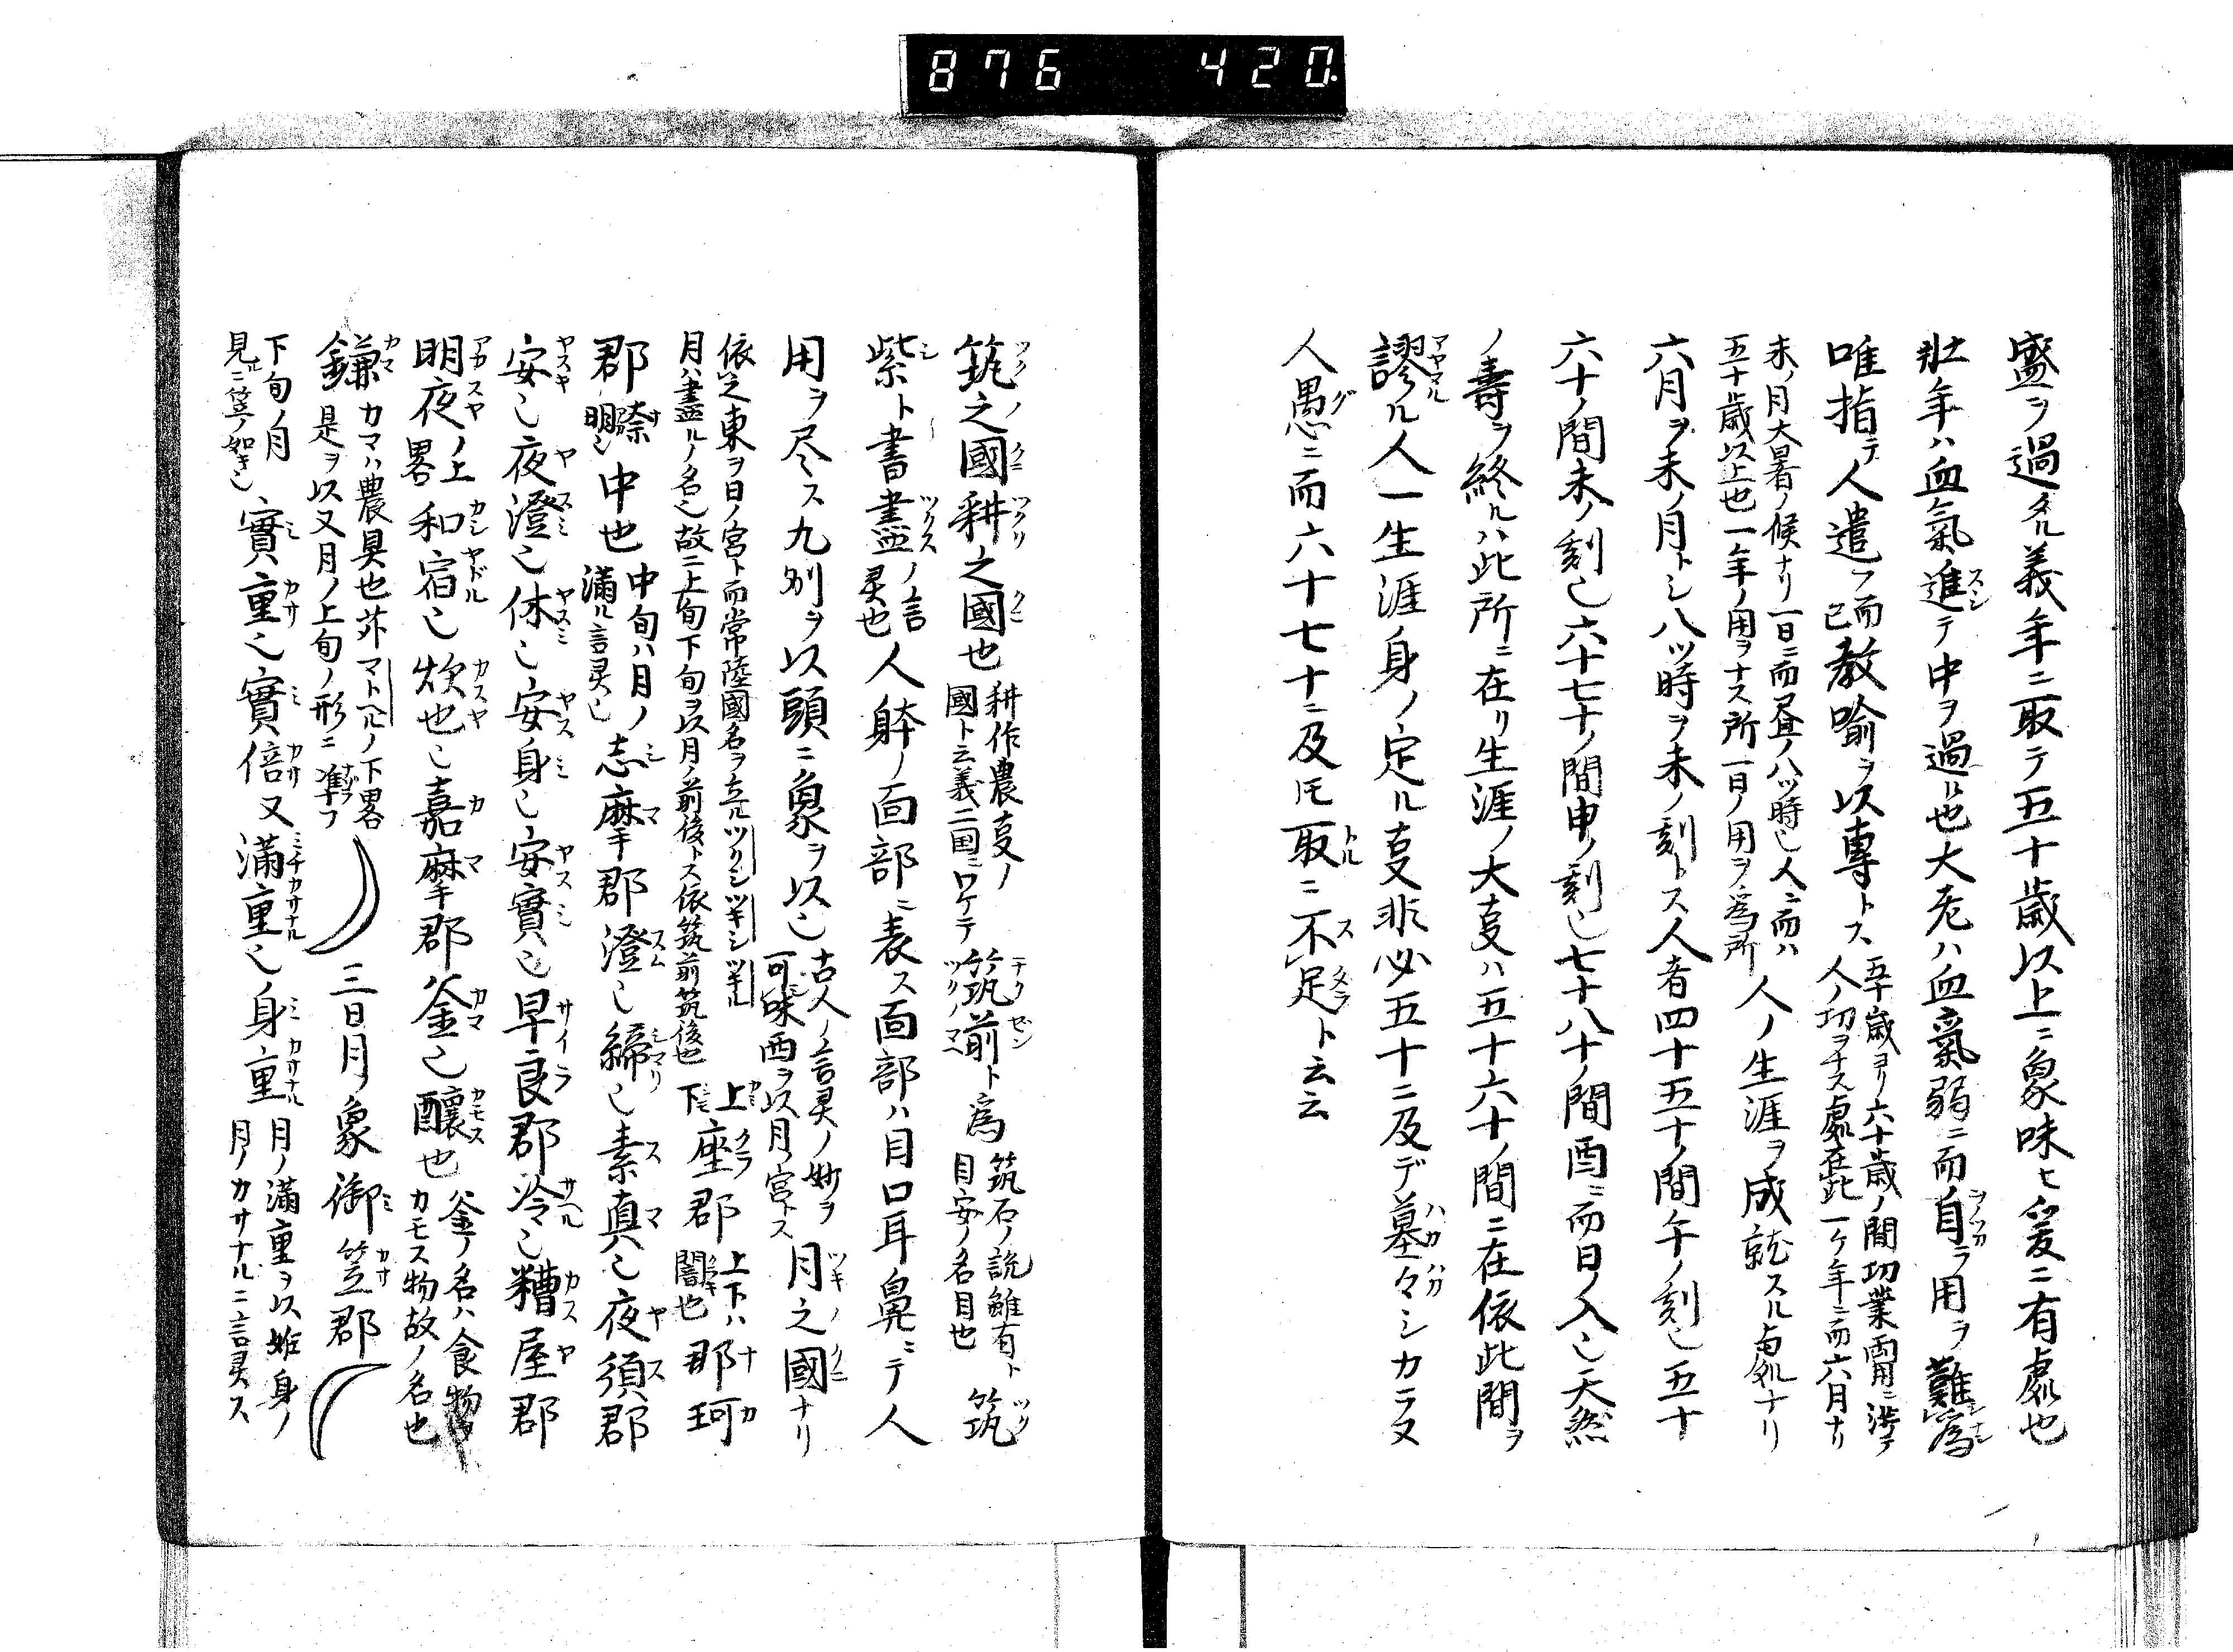 876 420.
盛ヲ過タル義年ニ取テ五十歳以上ニ象味セ爰ニ有處也
壯年ハ血氣進テ中ヲ過ト也大老ハ血氣弱ニ而自ラ用ヲ難為
唯指テ人遣ノ而已教喩ヲ以專トス 五十歳ヨリ六十歳ノ間功業両用ニ渉テ
人ノ切ヲナス處在此一ケ年ニ而六月ナリ
未ノ月大暑ノ候ナリ一日ニ而昼ノ八ツ時也人ニ而ハ
五十歳以上也一年ノ用ヲナス所一日ノ用ヲ為所 人ノ生涯ヲ成就スル處ナリ
六月ヲ未ノ月トシ八ツ時ヲ未ノ刻トス人者四十五十ノ間午ノ刻也五十
六十ノ間未ノ刻也六十七十ノ間申ノ刻也七十八十ノ間酉ニ而日ノ入也天然
ノ壽ヲ終ルハ此所ニ在リ生涯ノ大叓ハ五十六十ノ間ニ在依此間ヲ
謬ル人一生涯身ノ定ル叓非必五十ニ及デ墓々シカラヌ
人愚ニ而六十七十ニ及圧取ニ不足ト云云
筑之國耕之國也 耕作農叓ノ
國ト云義二国ニワケテ 筑前ト為 筑石ノ説雖有ト
目安ノ名目也 筑
紫ト書盡ノ言
灵也 人躰ノ面部ニ表ス面部ハ目口耳鼻ニテ人
用ヲ尽ス九別ヲ以頭ニ象ヲ以也 古人ノ言灵ノ妙ヲ
可味西ヲ以月ノ宮トス 月之國ナリ
依之東ヲ日ノ宮ト而常陸國名ヲ立ルツクシツキシツキル
月ハ盡ルノ名也故ニ上旬下旬ヲ以月ノ前後トス依筑前筑後也 上
下座郡 上下ハ
闇也 那珂
郡 明也 中也 中旬ハ月ノ
滿ル言灵也 志摩郡澄也締也素真也夜須郡
安也夜澄也休也安身也安實也早良郡冷也糟屋郡
明夜ノ上
畧 和宿也炊也也嘉摩郡釜也釀也 釜ノ名ハ食物ヲ
カモス物故ノ名也
鎌 カマハ農具也 マトヘルノ下畧
是ヲ以又月ノ上旬ノ形ニ準フ 三日月ノ象御笠郡
下旬ノ月
見ニ笠ノ如キ也 實重也實倍又滿重也身重 月ノ滿重ヲ以姙身ノ
月ノカサナルニ言灵ス